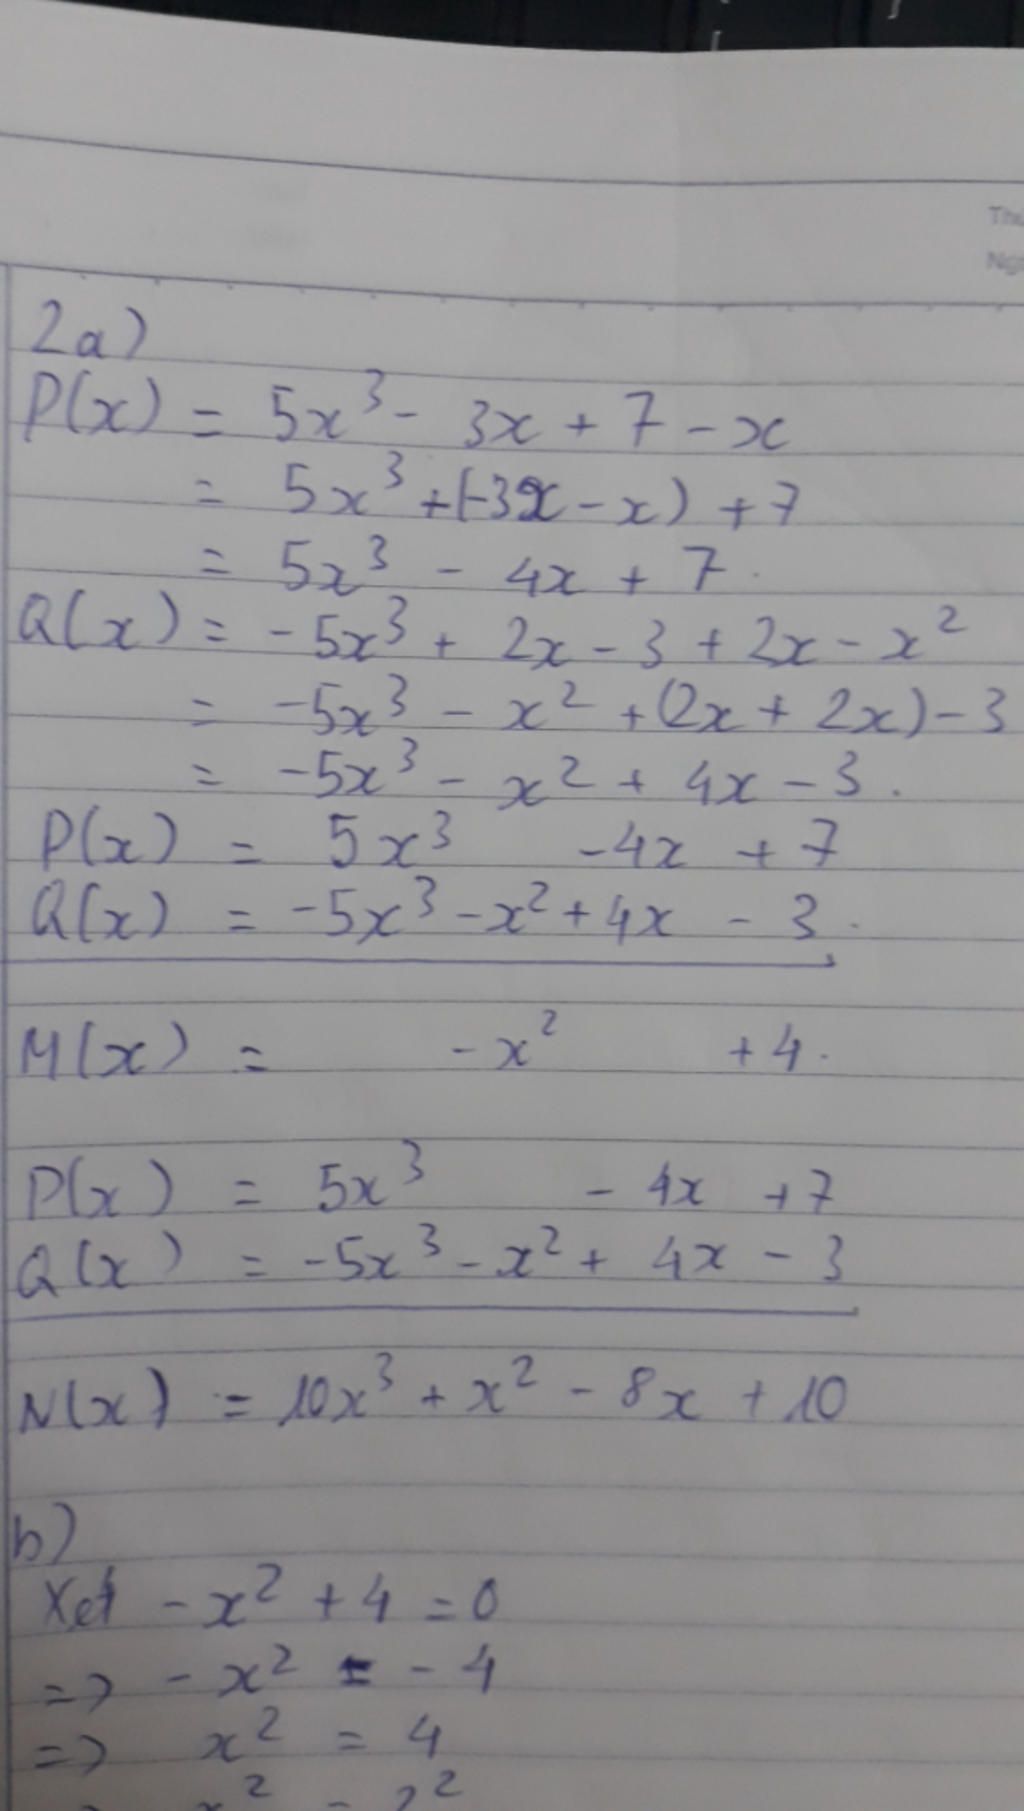 Thu
Ng
2a)
P(x) = 5x³ - 3x + 7 - x
= 5x³ + (-3x - x) + 7
= 5x³ - 4x + 7.
Q(x) = -5x³ + 2x - 3 + 2x - x²
= -5x³ - x² + (2x + 2x) - 3
= -5x³ - x² + 4x - 3.
P(x) = 5x³ -4x + 7
Q(x) = -5x³ - x² + 4x - 3.
M(x) = - x² + 4.
P(x) = 5x³ - 4x + 7
Q(x) = -5x³ - x² + 4x - 3
N(x) = 10x³ + x² - 8x + 10
b)
Xét - x² + 4 = 0
=> - x² = - 4
=> x² = 4
=> x² = 2²